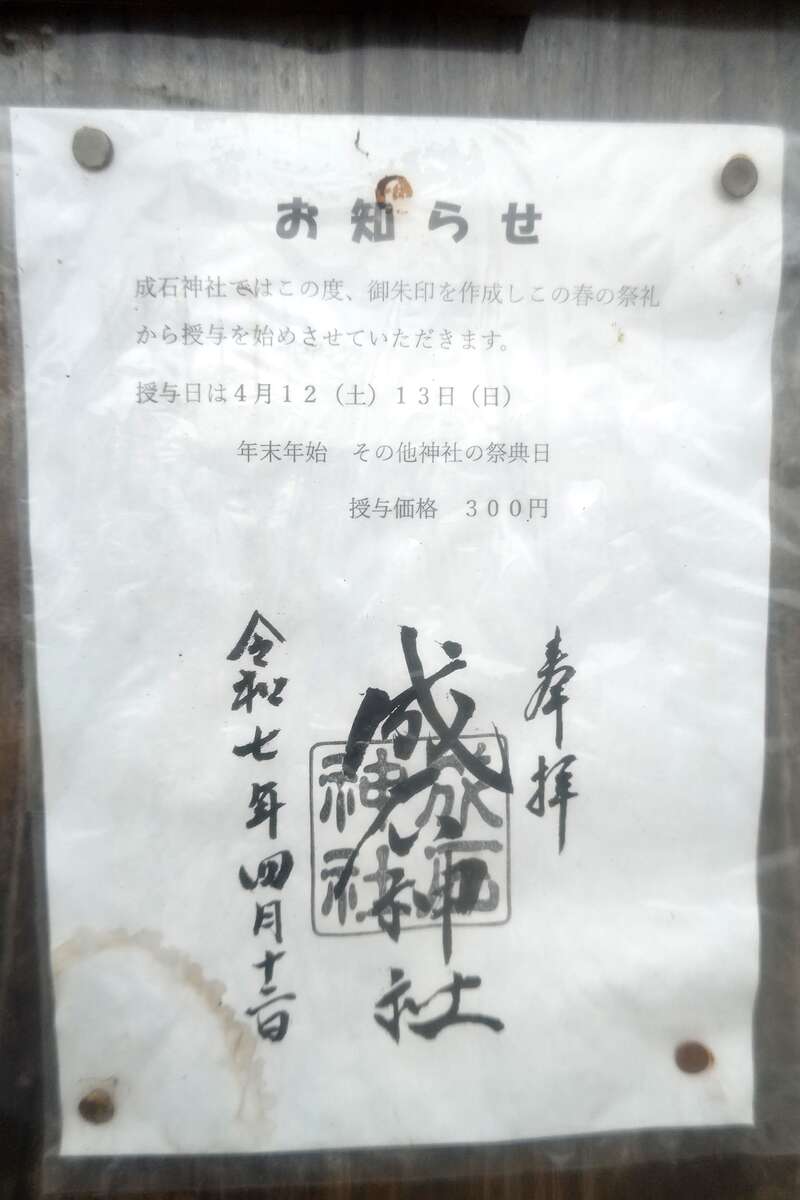 お知らせ
成石神社ではこの度、御朱印を作成しこの春の祭礼
から授与を始めさせていただきます。
授与日は４月１２（土）１３日（日）
年末年始　その他神社の祭典日
授与価格　３００円
奉拝
成石神社
成石
神社
令和七年四月十二日